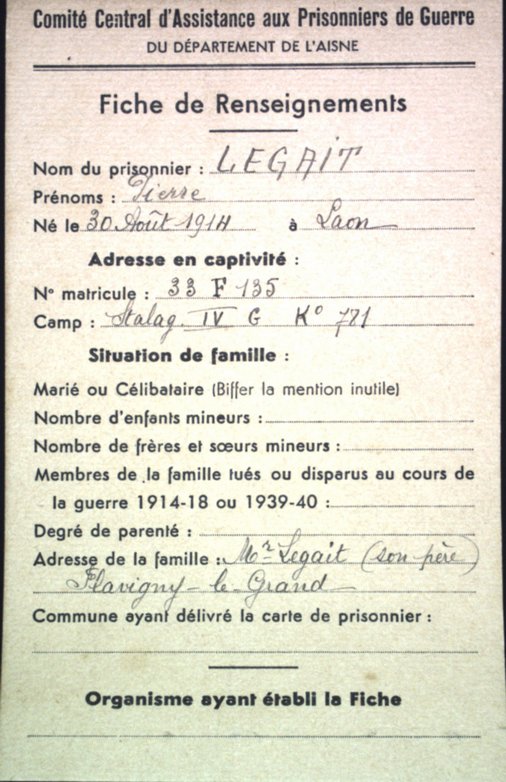 Comité Central d'Assistance aux Prisonniers de Guerre
DU DÉPARTEMENT DE L'AISNE
Fiche de Renseignements
Nom du prisonnier : LEGAIT
Prénoms : Pierre
Né le 30 Août 1914 à Laon
Adresse en captivité :
N° matricule : 33 F 135
Camp : Stalag IV G K° 721
Situation de famille :
Marié ou Célibataire (Biffer la mention inutile)
Nombre d'enfants mineurs :
Nombre de frères et sœurs mineurs :
Membres de la famille tués ou disparus au cours de
la guerre 1914-18 ou 1939-40 :
Degré de parenté :
Adresse de la famille : Mr Legait (son père)
Flavigny-le-Grand
Commune ayant délivré la carte de prisonnier :
Organisme ayant établi la Fiche